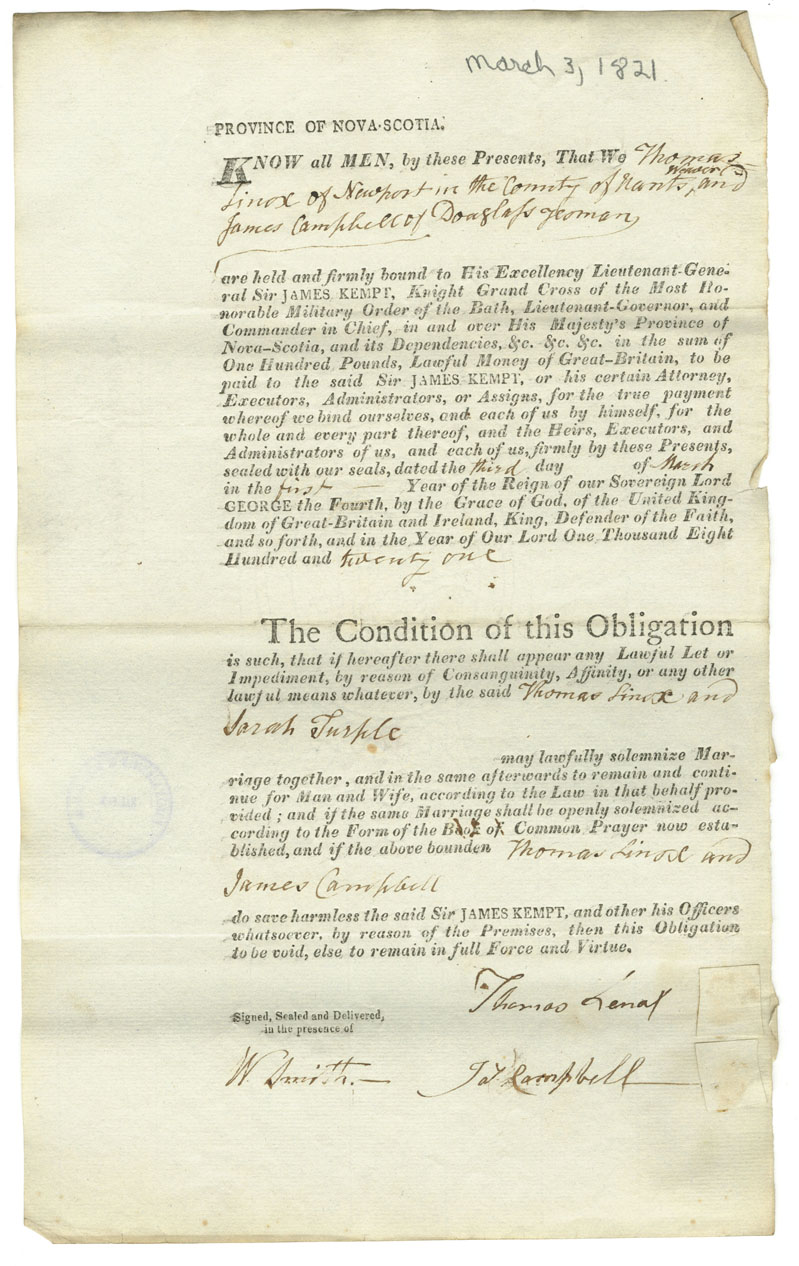 March 3, 1821
PROVINCE OF NOVA-SCOTIA.
KNOW all MEN, by these Presents, That We Thomas
Linox of Newport in the County of Hants, and
James Campbell of Douglass yeoman,
are held and firmly bound to His Excellency Lieutenant-Gene-
ral Sir JAMES KEMPT, Knight Grand Cross of the Most Ho-
norable Military Order of the Bath, Lieutenant-Governor, and
Commander in Chief, in and over His Majesty's Province of
Nova-Scotia, and its Dependencies, &c. &c. &c. in the sum of
One Hundred Pounds, Lawful Money of Great-Britain, to be
paid to the said Sir JAMES KEMPT, or his certain Attorney,
Executors, Administrators, or Assigns, for the true payment
whereof we bind ourselves, and each of us by himself, for the
whole and every part thereof, and the Heirs, Executors, and
Administrators of us, and each of us, firmly by these Presents,
sealed with our seals, dated the third day of March
in the first — Year of the Reign of our Sovereign Lord
GEORGE the Fourth, by the Grace of God, of the United King-
dom of Great-Britain and Ireland, King, Defender of the Faith,
and so forth, and in the Year of Our Lord One Thousand Eight
Hundred and twenty one
The Condition of this Obligation
is such, that if hereafter there shall appear any Lawful Let or
Impediment, by reason of Consanguinity, Affinity, or any other
lawful means whatever, by the said Thomas Linox and
Sarah Turple
may lawfully solemnize Mar-
riage together, and in the same afterwards to remain and conti-
nue for Man and Wife, according to the Law in that behalf pro-
vided; and if the same Marriage shall be openly solemnized ac-
cording to the Form of the Book of Common Prayer now esta-
blished, and if the above bounden Thomas Linox and
James Campbell
do save harmless the said Sir JAMES KEMPT, and other his Officers
whatsoever, by reason of the Premises, then this Obligation
to be void, else to remain in full Force and Virtue.
Thomas Lenox
Signed, Sealed and Delivered,
in the presence of
W Smith. —
Campbell